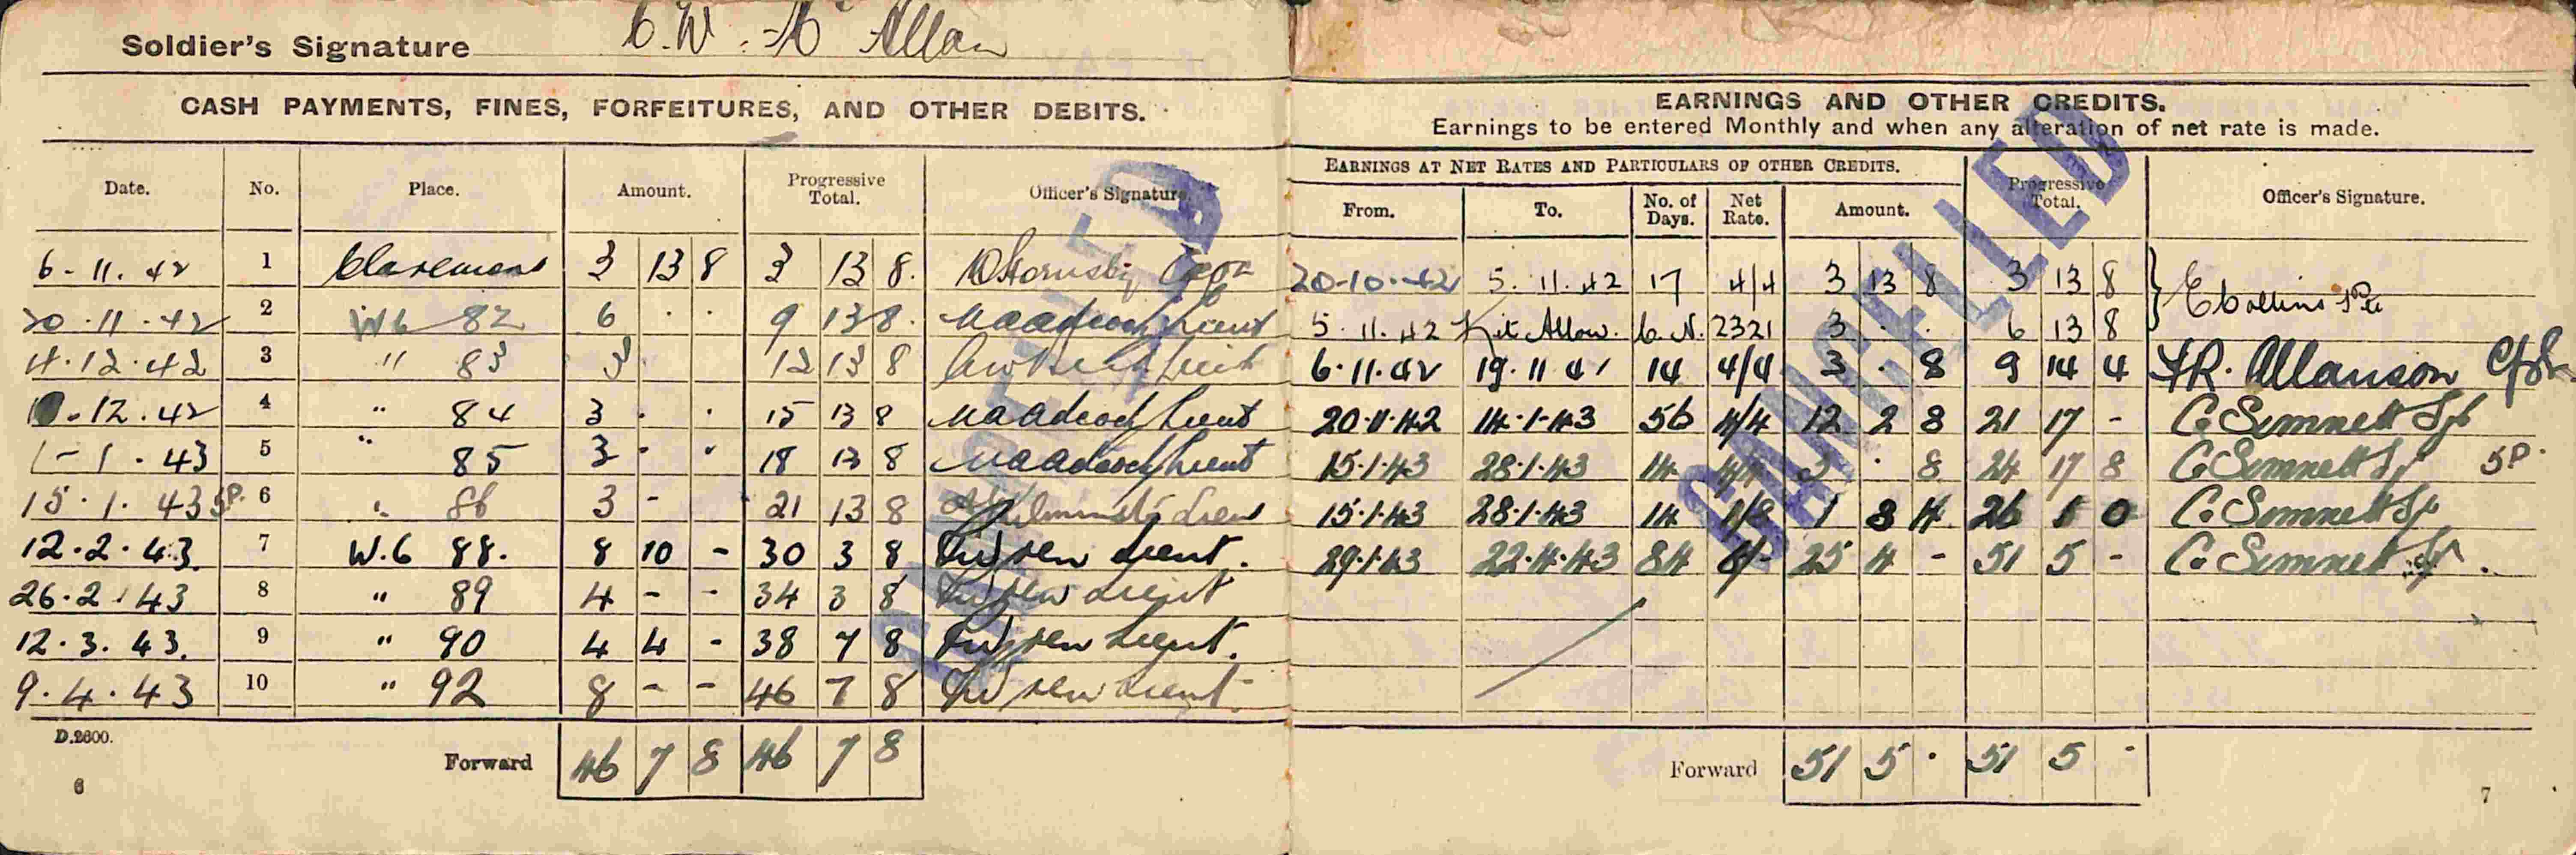 Soldier's Signature C. W. Mc Allan
CASH PAYMENTS, FINES, FORFEITURES, AND OTHER DEBITS.
Date. No. Place. Amount. Progressive Total. Officer's Signature.
6-11.42 1 Claremont 3 13 8 3 13 8.
20.11.42 2 W6 82 6 . . 9 13 8. Lieut
4.12.42 3 " 83 3 12 13 8 Lieut
.12.42 4 " 84 3 . . 15 13 8 Lieut
1-1.43 5 " 85 3 . . 18 13 8 Lieut
15.1.43 SP. 6 " 86 3 - 21 13 8 Lieut
12.2.43. 7 W.6 88. 8 10 - 30 3 8 Lieut.
26.2.43 8 " 89 4 - - 34 3 8 Lieut
12.3.43. 9 " 90 4 4 - 38 7 8 Lieut.
9.4.43 10 " 92 8 - - 46 7 8 Lieut
D.2600.
Forward 46 7 8 46 7 8
6
EARNINGS AND OTHER CREDITS.
Earnings to be entered Monthly and when any alteration of net rate is made.
EARNINGS AT NET RATES AND PARTICULARS OF OTHER CREDITS. Progressive Total. Officer's Signature.
From. To. No. of Days. Net Rate. Amount.
20-10-42 5.11.42 17 4/4 3 13 8 3 13 8
5.11.42 Kit Allow. C.N. 2321 3 . . 6 13 8 E Collins
6.11.42 19.11 14 4/4 3 . 8 9 14 4 Allanson
20.11.42 14.1.43 56 4/4 12 2 8 21 17 - C. Simnett
15.1.43 28.1.43 14 4/4 3 . 8 24 17 8 C. Simnett SP.
15.1.43 28.1.43 14 1/8 1 3 4 26 1 0 C. Simnett
29.1.43 22.4.43 84 6/- 25 4 - 51 5 - C. Simnett
Forward 51 5 . 51 5 -
7
CANCELLED